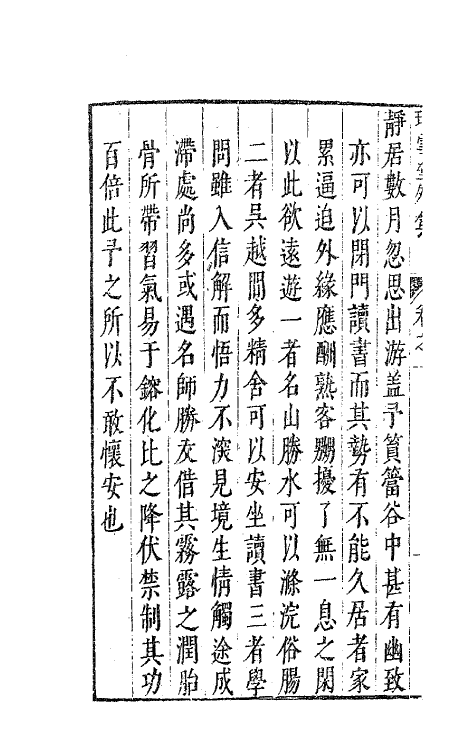 靜居數月忽思出游盖予篔簹谷中甚有幽致
亦可以閉門讀書而其勢有不能久居者家
累逼迫外緣應酬熟客嬲擾了無一息之閑
以此欲遠遊一者名山勝水可以滌浣俗腸
二者吳越間多精舍可以安坐讀書三者學
問雖入信解而悟力不深見境生情觸途成
滯處尚多或遇名師勝友借其霧露之潤胎
骨所帶習氣易于鎔化比之降伏禁制其功
百倍此予之所以不敢懷安也